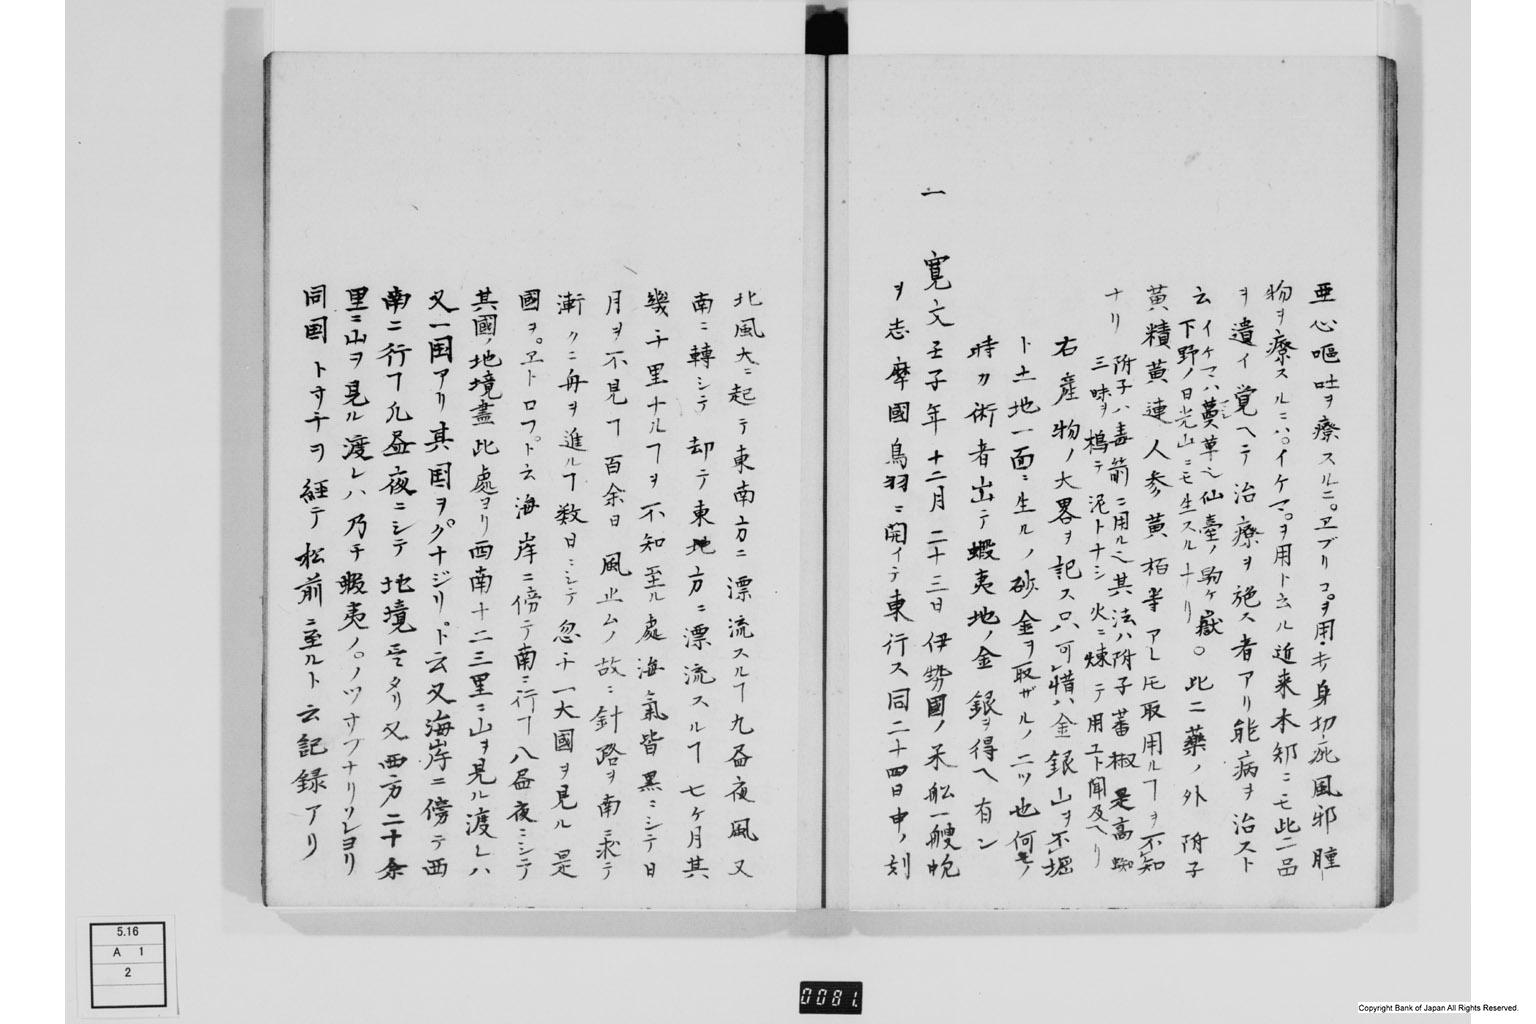 亜心嘔吐ヲ療スルニ。ヱブリコ。ヲ用・キノ身切疵風邪腫
物ヲ療スルニハ。イケマ。ヲ用ト云ル近来本邦ニモ此二品
ヲ遣イ覚ヘテ治療ヲ施ス者アリ能病ヲ治スト
云 イケマハ蔓草也仙臺ノ駒ケ嶽
下野ノ日光山ニモ生スルナリ 。此二藥ノ外 附子
黄精黄連人参黄栢等アレ𪜈取用ルヿヲ不知
ナリ 附子ハ毒箭ニ用ル也其法ハ附子蕃椒是高蜘
三味ヲ搗テ泥トナシ火ニ煉テ用ユト聞及ヘリ
右産物ノ大畧ヲ記ス只可惜ハ金銀山ヲ不堀
ト土地一面ニ生ルノ砂金ヲ取ザルノ二ツ也何レノ
時カ術者出テ蝦夷地ノ金銀ヲ得ヘ有ン
一 寛文壬子年十二月二十三日伊勢國ノ米舩一艘帆
ヲ志摩國鳥羽ニ開イテ東行ス同二十四日申ノ刻
北風大ニ起テ東南ノ方ニ漂流スルヿ九昼夜風又
南ニ轉シテ却テ東北ノ方ニ漂流スルヿ七ケ月其
幾千里ナルヿヲ不知至ル處海氣皆黒ニシテ日
月ヲ不見ヿ百余日風止ムノ故ニ針路ヲ南ニ乘テ
漸クニ舟ヲ進ルヿ数日ニシテ忽チ一大國ヲ見ル是
國ヲ。ヱトロフ。ト云海岸ニ傍テ南ニ行ヿ八昼夜ニシテ
其國ノ地境盡此處ヨリ西南十二三里ニ山ヲ見ル渡レハ
又一国アリ其国ヲ。クナジリ。ト云又海岸ニ傍テ西
南ニ行ヿ凡昼夜ニシテ地境至タリ又西方二十余
里ニ山ヲ見ル渡レハ乃チ蝦夷ノ。ノツサブナリソレヨリ
同国トカチヲ経テ松前ニ至ルト云記録アリ
5.16
A 1
2
0081.
Copyright Bank of Japan All Rights Reserved.